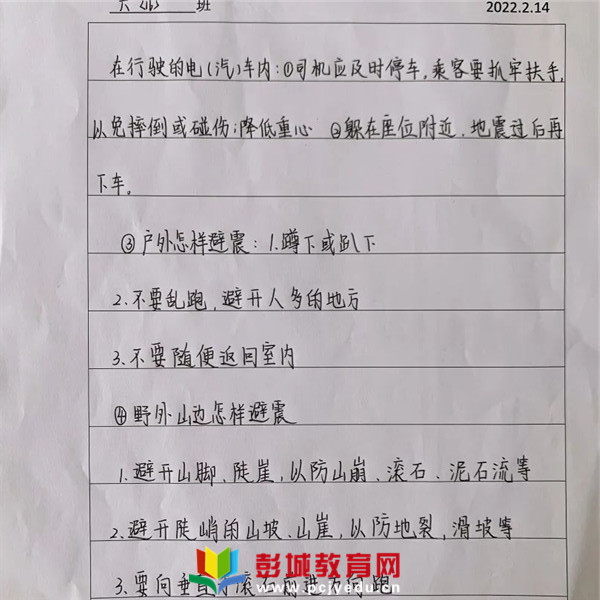 六(6) 班 2022.2.14
在行驶的电(汽)车内:①司机应及时停车,乘客要抓牢扶手,
以免摔倒或碰伤;降低重心 ②躲在座位附近,地震过后再
下车。
③户外怎样避震:1.蹲下或趴下
2.不要乱跑,避开人多的地方
3.不要随便返回室内
④野外山边怎样避震
1.避开山脚、陡崖,以防山崩、滚石、泥石流等
2.避开陡峭的山坡、山崖,以防地裂,滑坡等
3.要向垂直于滚石前进方向跑
彭城教育网
www.pcjyedu.com